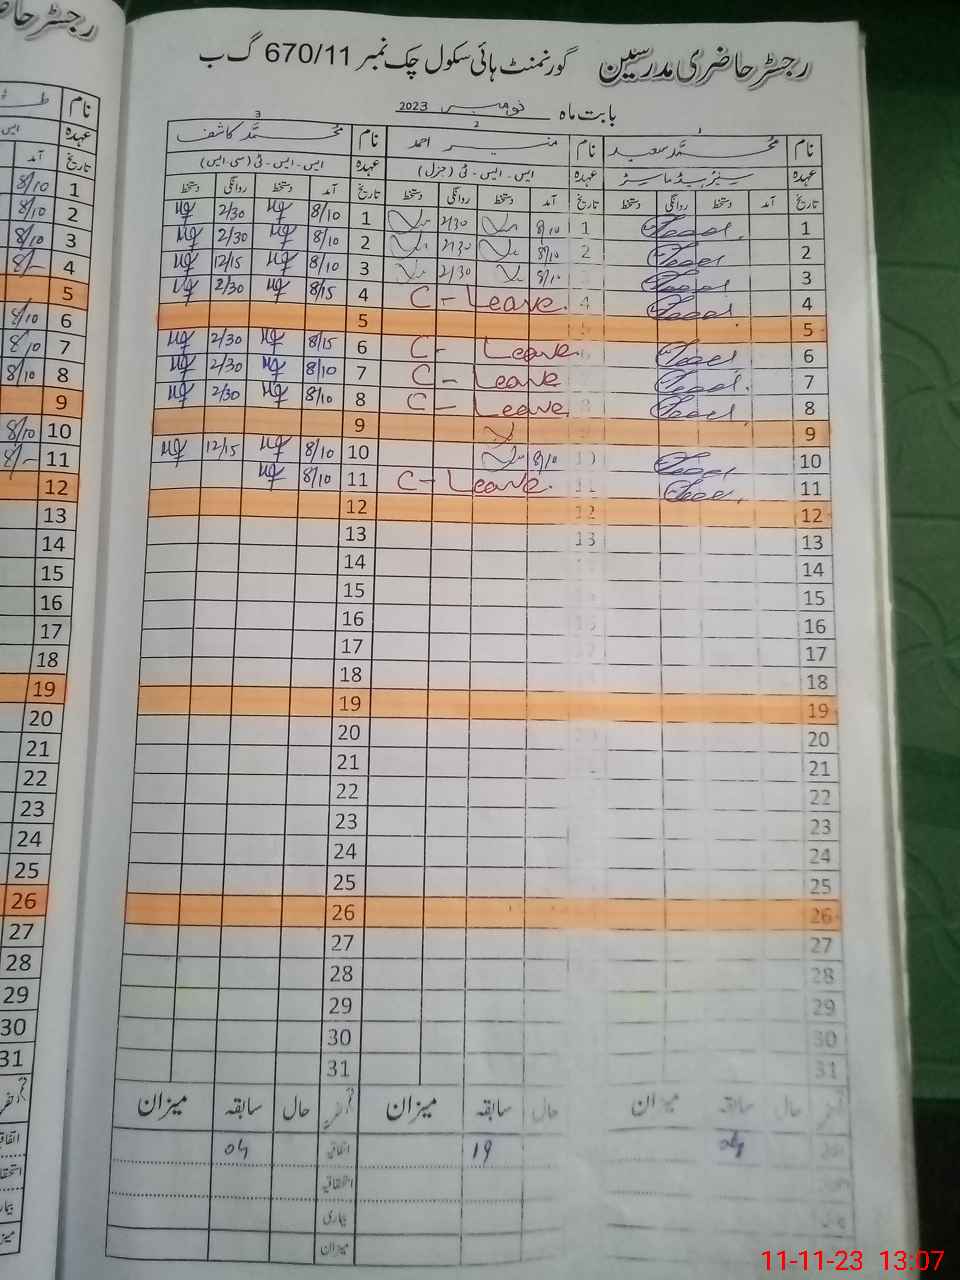 رجسٹر حاضری مدرسین گورنمنٹ ہائی سکول چک نمبر 670/11 گ ب
بابت ماہ نومبر 2023
1 2 3
نام محمد سعید نام منیر احمد نام محمد کاشف
عہدہ سینئر ہیڈ ماسٹر عہدہ ایس۔ایس۔ٹی (جنرل) عہدہ ایس۔ایس۔ٹی (سی ایس)
تاریخ آمد دستخط روانگی دستخط تاریخ آمد دستخط روانگی دستخط تاریخ آمد دستخط روانگی دستخط
1 1 8/10 2/30 1 8/10 2/30
2 2 8/10 2/30 2 8/10 2/30
3 8/10 2/30 3 8/10 12/15
4 4 C - Leave 4 8/15 2/30
5 5
6 C - Leave 6 8/15 2/30
7 C - Leave 7 8/10 2/30
8 C - Leave 8 8/10 2/30
9 9
10 10 8/10 10 8/10 12/15
11 11 C - Leave 11 8/10
12 12 12
13 13 13
14 14
15 15
16 16
17 17
18 18
19 19
20 20
21 21
22 22
23 23
24 24
25 25
26 26
27 27
28 28
29 29
30 30
31 31
حال سابقہ میزان حال سابقہ میزان حال سابقہ میزان
04 19 اتفاقیہ 04
استحقاقیہ
بیماری
میزان
رجسٹر حاضری
نام
عہدہ
تاریخ آمد
1 8/10
2 8/10
3 8/10
4 8/-
5
6 8/10
7 8/10
8 8/10
9
10 8/10
11 8/-
12
13
14
15
16
17
18
19
20
21
22
23
24
25
26
27
28
29
30
31
11-11-23 13:07